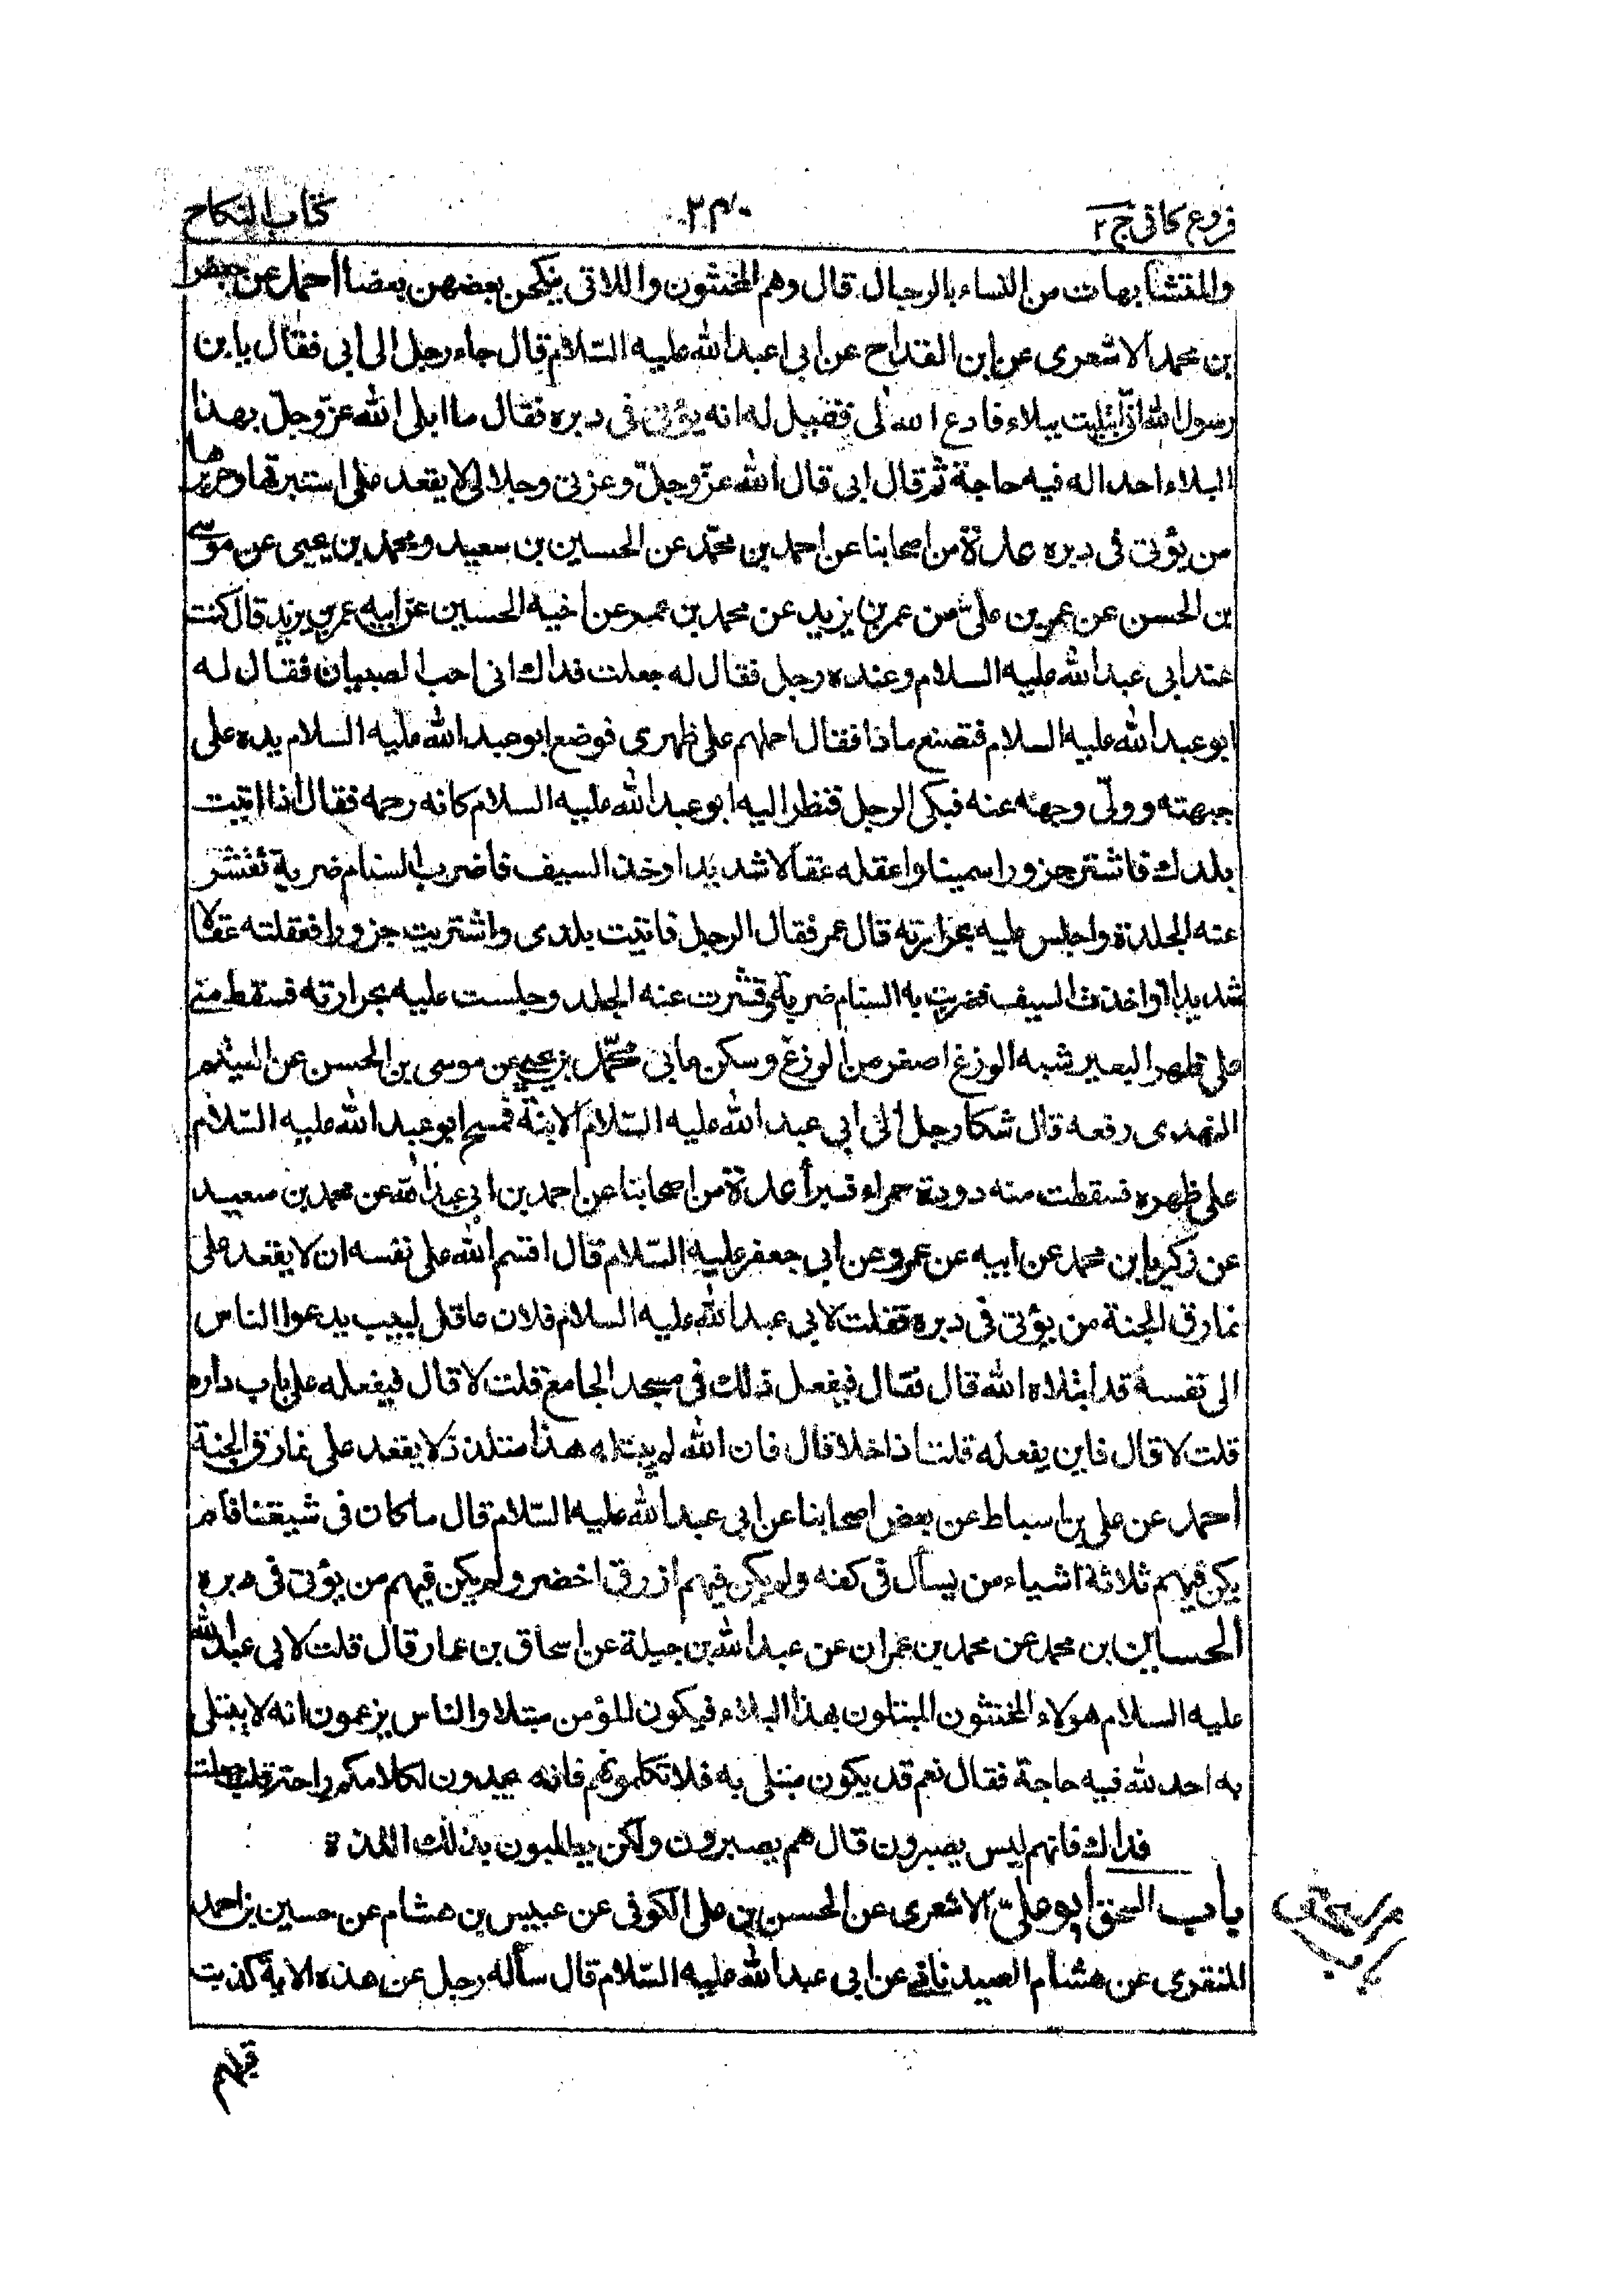 فروع كافى ج ٢
٢٣٠
كتاب النكاح
والمتشابهات من النساء بالرجال قال وهم المخنثون واللاتى ينكحن بعضهن بعضا احمد عن جعفر
بن محمد الاشعرى عن ابن القداح عن ابى عبد الله عليه السلام قال جاء رجل الى ابى فقال يا بن
رسول الله انى ابتليت ببلاء فادع الله لى فقيل له انه يؤتى فى دبره فقال ما ابلى الله عزّ وجلّ بهذا
البلاء احدا له فيه حاجة ثم قال ابى قال الله عزّ وجلّ وعزتى وجلالى لا يقعد على استبرقها وحريرها
من يؤتى فى دبره عدة من اصحابنا عن احمد بن محمّد عن الحسين بن سعيد ومحمد بن يحيى عن موسى
بن الحسن عن عمر بن علىّ من عمر بن يزيد عن محمد بن عمر عن اخيه الحسين عن ابيه عمر بن يزيد قال كنت
عند ابى عبد الله عليه السلام وعنده رجل فقال له جعلت فداك انى احب الصبيان فقال له
ابو عبد الله عليه السلام فتصنع ماذا فقال احملهم على ظهرى فوضع ابو عبد الله عليه السلام يده على
جبهته وولّى وجهه عنه فبكى الرجل فنظر اليه ابو عبد الله عليه السلام كانه رحمه فقال اذا اتيت
بلدك فاشتر جزورا سمينا واعقله عقالا شديدا وخذ السيف فاضرب السنام ضربة تقشر
عنه الجلدة واجلس عليه بحرارته قال عمر فقال الرجل فاتيت بلدى واشتريت جزورا فعقلته عقالا
شديدا واخذت السيف فضربت به السنام ضربة وقشرت عنه الجلد وجلست عليه بحرارته فسقط منى
على ظهر البعير شبه الوزغ اصغر من الوزغ وسكن ما بى محمّد بن يحيى عن موسى بن الحسن عن الهيثم
النهدى رفعه قال شكا رجل الى ابى عبد الله عليه السّلام الابنة فمسح ابو عبد الله عليه السّلام
على ظهره فسقطت منه دودة حمراء فبرأ عدة من اصحابنا عن احمد بن ابى عبد الله عن محمد بن سعيد
عن زكريا بن محمد عن ابيه عن عمرو عن ابى جعفر عليه السّلام قال اقسم الله على نفسه ان لا يقعد على
نمارق الجنة من يؤتى فى دبره فقلت لابى عبد الله عليه السلام فلان عاقل لبيب يدعوا الناس
الى نفسه قد ابتلاه الله قال فقال فيفعل ذلك فى مسجد الجامع قلت لا قال فيفعله على باب داره
قلت لا قال فاين يفعله قلت اذا خلا قال فان الله لم يبتله هذا متلذذ لا يقعد على نمارق الجنة
احمد عن على بن اسباط عن بعض اصحابنا عن ابى عبد الله عليه السّلام قال ما كان فى شيعتنا فلم
يكن فيهم ثلاثة اشياء من يسأل فى كفه ولم يكن فيهم ازرق اخضر ولم يكن فيهم من يؤتى فى دبره
الحسين بن محمد عن محمد بن عمران عن عبد الله بن جبلة عن اسحاق بن عمار قال قلت لابى عبد الله
عليه السلام هولاء المخنثون المبتلون بهذا البلاء فيكون المؤمن مبتلا والناس يزعمون انه لا يبتلى
به احد لله فيه حاجة فقال نعم قد يكون مبتلى به فلا تكلموهم فانهم يجدون لكلامكم راحة قلت جعلت
فداك فانهم ليس يصبرون قال هم يصبرون ولكن يطلبون بذلك اللذة
باب السحق ابو علىّ الاشعرى عن الحسن بن على الكوفى عن عبيس بن هشام عن حسين بن احمد
المنقرى عن هشام الصيدنانى عن ابى عبد الله عليه السّلام قال سأله رجل عن هذه الاية كذبت
قبلهم